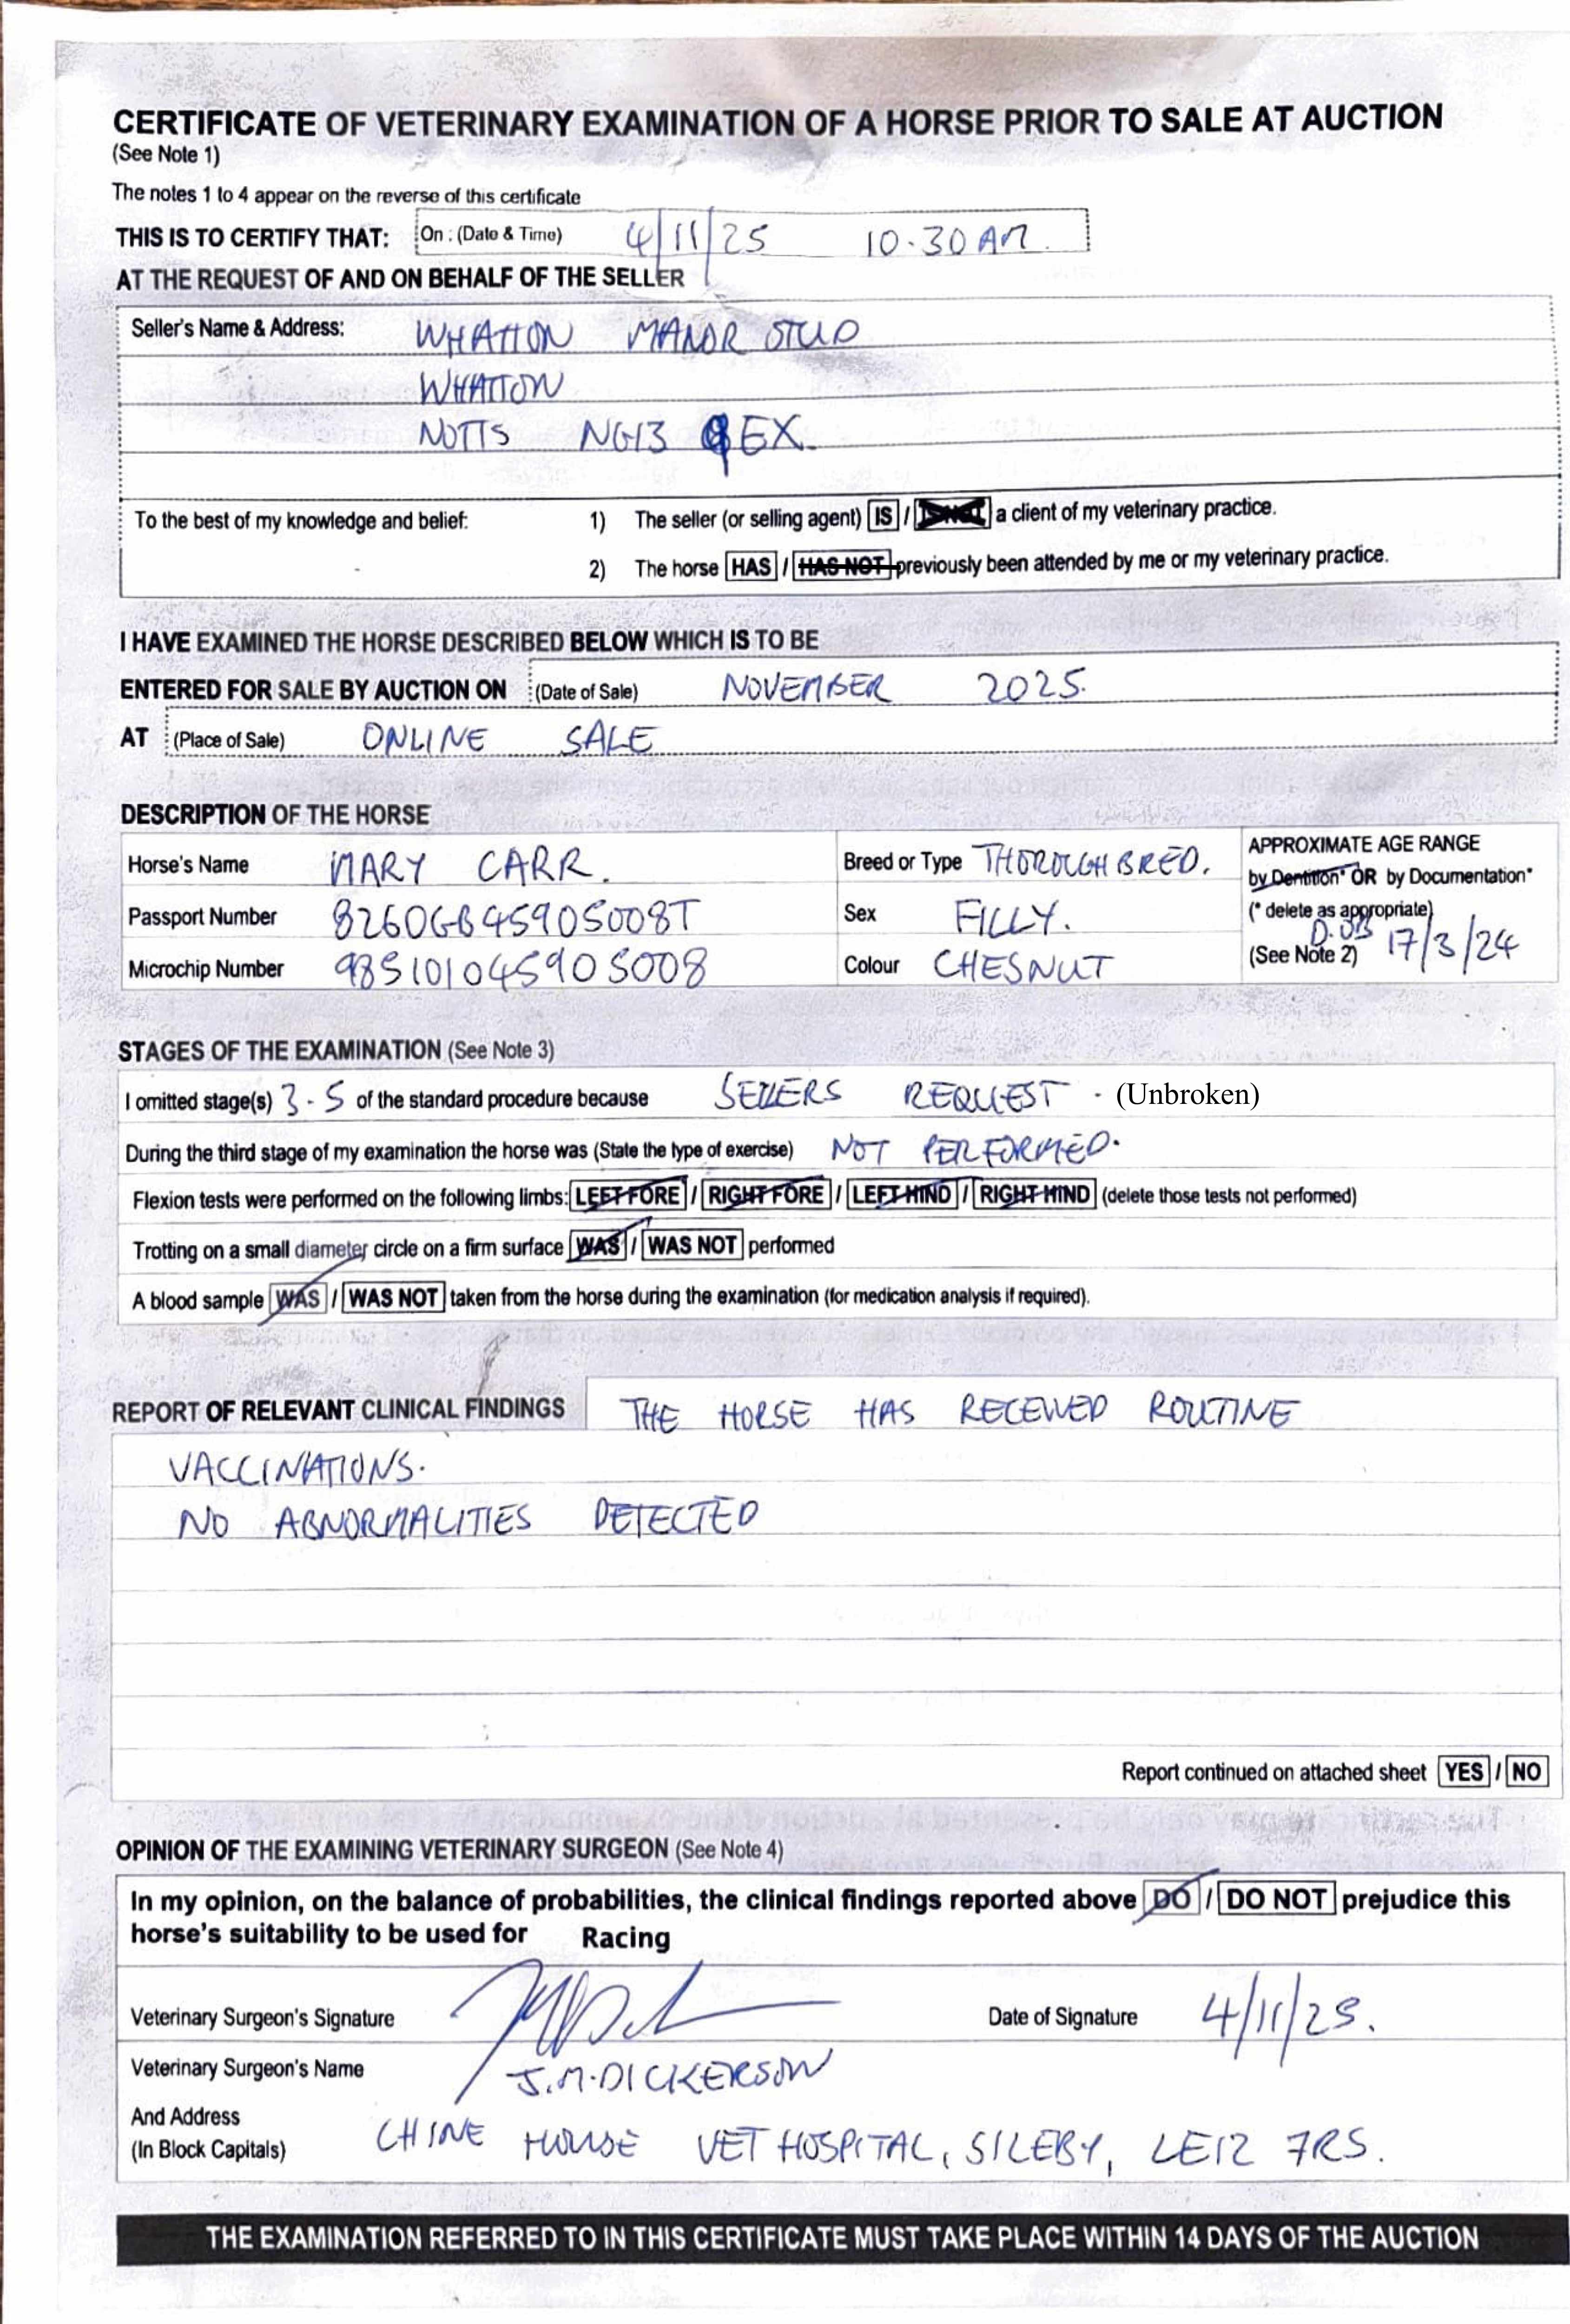 CERTIFICATE OF VETERINARY EXAMINATION OF A HORSE PRIOR TO SALE AT AUCTION
(See Note 1)
The notes 1 to 4 appear on the reverse of this certificate
THIS IS TO CERTIFY THAT: On : (Date & Time) 4/11/25 10.30 AM.
AT THE REQUEST OF AND ON BEHALF OF THE SELLER
Seller's Name & Address: WHATTON MANOR STUD
WHATTON
NOTTS NG13 9EX.
To the best of my knowledge and belief: 1) The seller (or selling agent) IS / IS NOT a client of my veterinary practice.
2) The horse HAS / HAS NOT previously been attended by me or my veterinary practice.
I HAVE EXAMINED THE HORSE DESCRIBED BELOW WHICH IS TO BE
ENTERED FOR SALE BY AUCTION ON (Date of Sale) NOVEMBER 2025.
AT (Place of Sale) ONLINE SALE
DESCRIPTION OF THE HORSE
Horse's Name MARY CARR. Breed or Type THOROUGHBRED. APPROXIMATE AGE RANGE
by Dentition* OR by Documentation*
Passport Number 8260GB45905008T Sex FILLY. (* delete as appropriate)
Microchip Number 985101045905008 Colour CHESNUT (See Note 2) D.OB 17/3/24
STAGES OF THE EXAMINATION (See Note 3)
I omitted stage(s) 3-5 of the standard procedure because SELLERS REQUEST - (Unbroken)
During the third stage of my examination the horse was (State the type of exercise) NOT PERFORMED.
Flexion tests were performed on the following limbs: LEFT FORE / RIGHT FORE / LEFT HIND / RIGHT HIND (delete those tests not performed)
Trotting on a small diameter circle on a firm surface WAS / WAS NOT performed
A blood sample WAS / WAS NOT taken from the horse during the examination (for medication analysis if required).
REPORT OF RELEVANT CLINICAL FINDINGS THE HORSE HAS RECEIVED ROUTINE
VACCINATIONS.
NO ABNORMALITIES DETECTED
Report continued on attached sheet YES / NO
OPINION OF THE EXAMINING VETERINARY SURGEON (See Note 4)
In my opinion, on the balance of probabilities, the clinical findings reported above DO / DO NOT prejudice this
horse's suitability to be used for Racing
Veterinary Surgeon's Signature Date of Signature 4/11/25.
Veterinary Surgeon's Name J.M.DICKERSON
And Address
(In Block Capitals) CHINE HOUSE VET HOSPITAL, SILEBY, LE12 7RS.
THE EXAMINATION REFERRED TO IN THIS CERTIFICATE MUST TAKE PLACE WITHIN 14 DAYS OF THE AUCTION